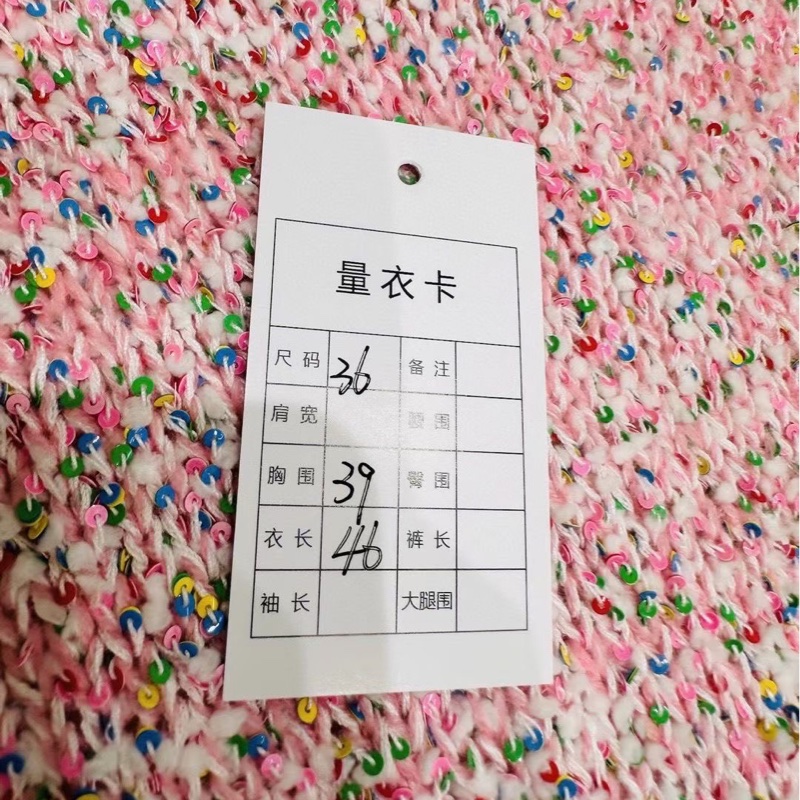 量衣卡
尺码 36 备注
肩宽 腰围
胸围 39 臀围
衣长 46 裤长
袖长 大腿围